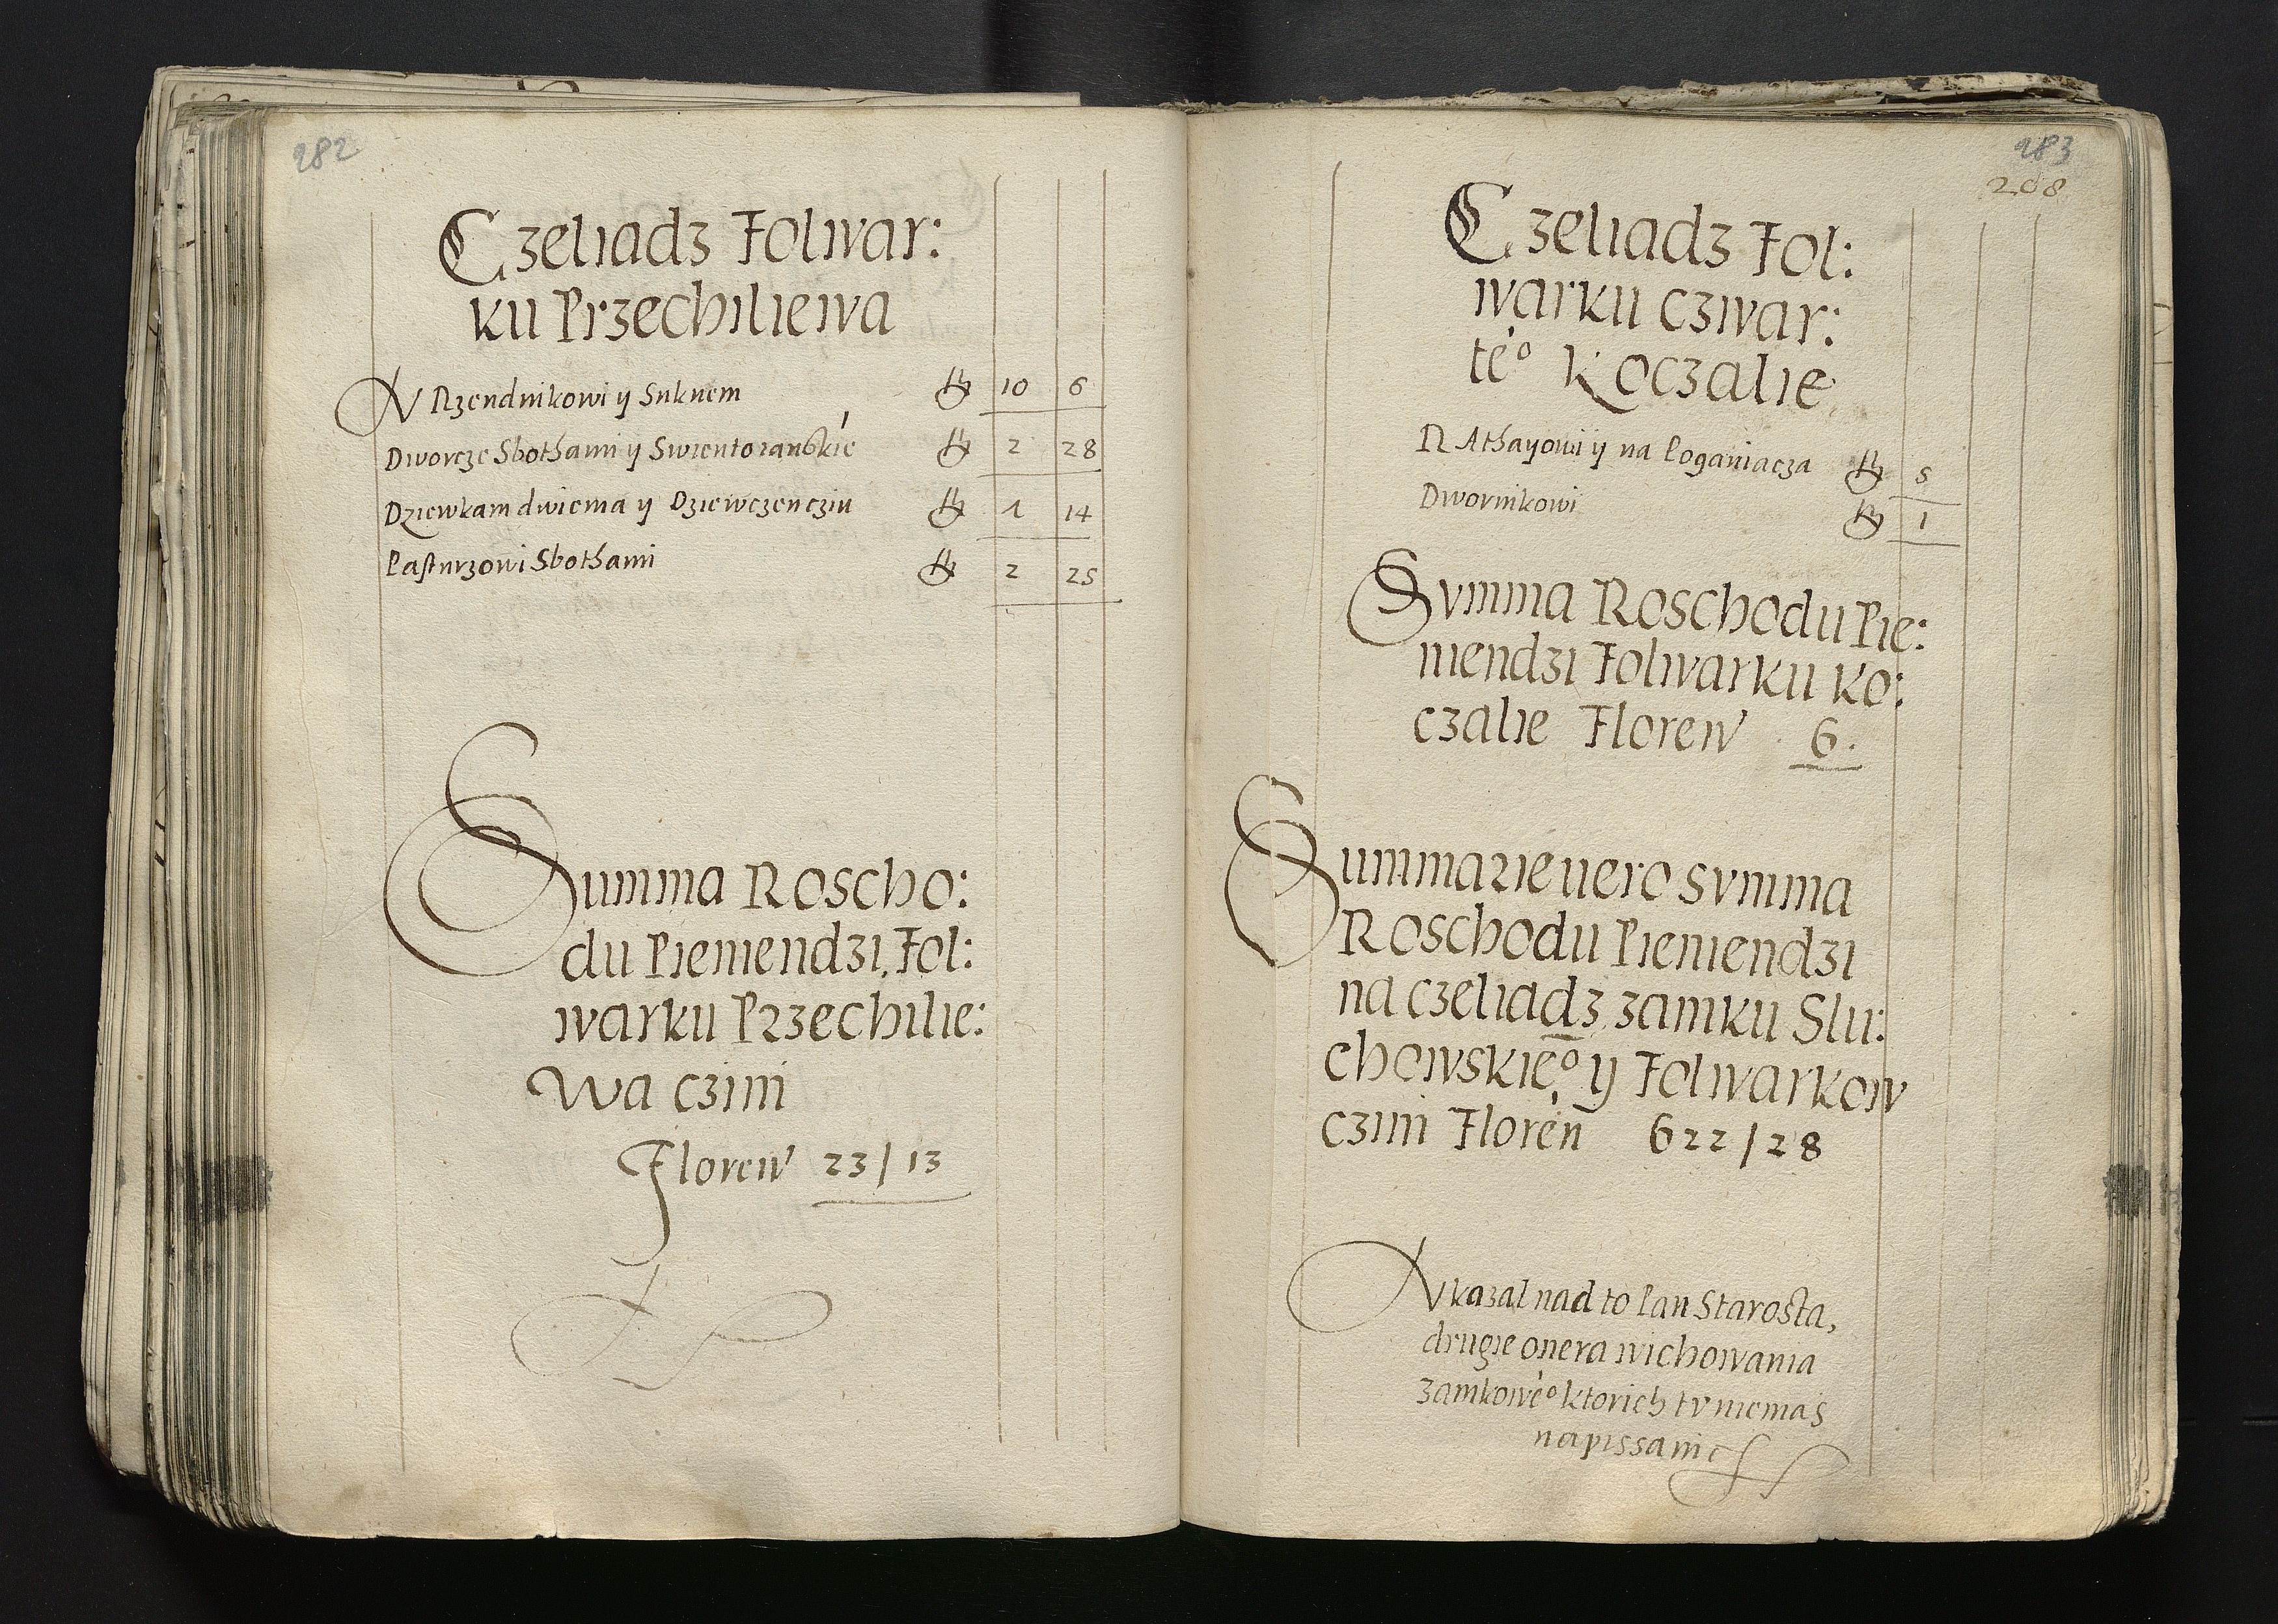 282
Czeliadz Folwar:
ku Przechiliewa
Urzendnikowi y Suknem fl 10 6
Dworcze Sbothami y Swientoianskie fl 2 28
Dziewkam dwiema y Dziewczencziu fl 1 14
Pasturzowi Sbothami fl 2 25
Summa Roscho:
du Pieniendzi Fol:
warku Przechilie:
wa czini
Floren 23/13
283
208
Czeliadz Fol:
warku czwar:
te⁰ Koczalie
Rathayowi y na Poganiacza fl 5
Dwornikowi fl 1
Summa Roschodu Pie:
niendzi Folwarku Ko:
czalie Floren 6.
Summarie uero summa
Roschodu Pieniendzi
na czeliadz zamku Slu:
chowskie⁰ y Folwarkow
czini Floren 622/28
Ukazal nad to Pan Starosta,
drugie onera wichowania
zamkowe⁰ ktorich tu niemas
napissanie